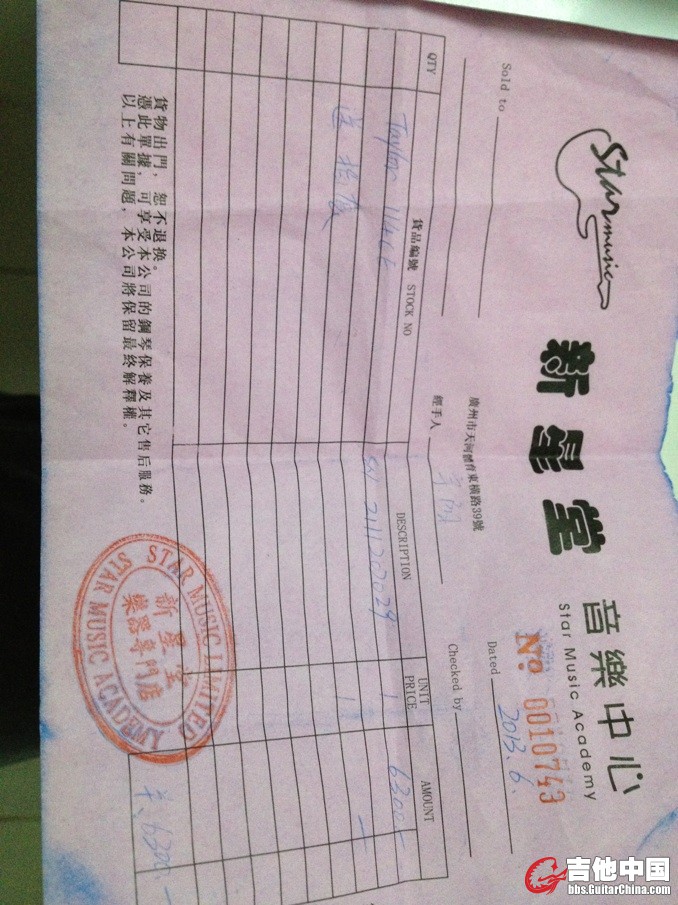 Star music
新星堂 音樂中心
Star Music Academy
No 0010743
廣州市天河體育東橫路39號
Sold to
Dated 2013.6.
經手人
Checked by
QTY 貨品編號 STOCK NO DESCRIPTION UNIT PRICE AMOUNT
Taylor 114CE SN 2111202029 1 6300.-
送 1 -
6300.-
貨物出門，恕不退換。
憑此單據，可享受本公司的鋼琴保養及其它售后服務。
以上有關問題，本公司將保留最終解釋權。
STAR MUSIC LIMITED
新星堂
樂器專門店
STAR MUSIC ACADEMY
吉他中国
bbs.GuitarChina.com